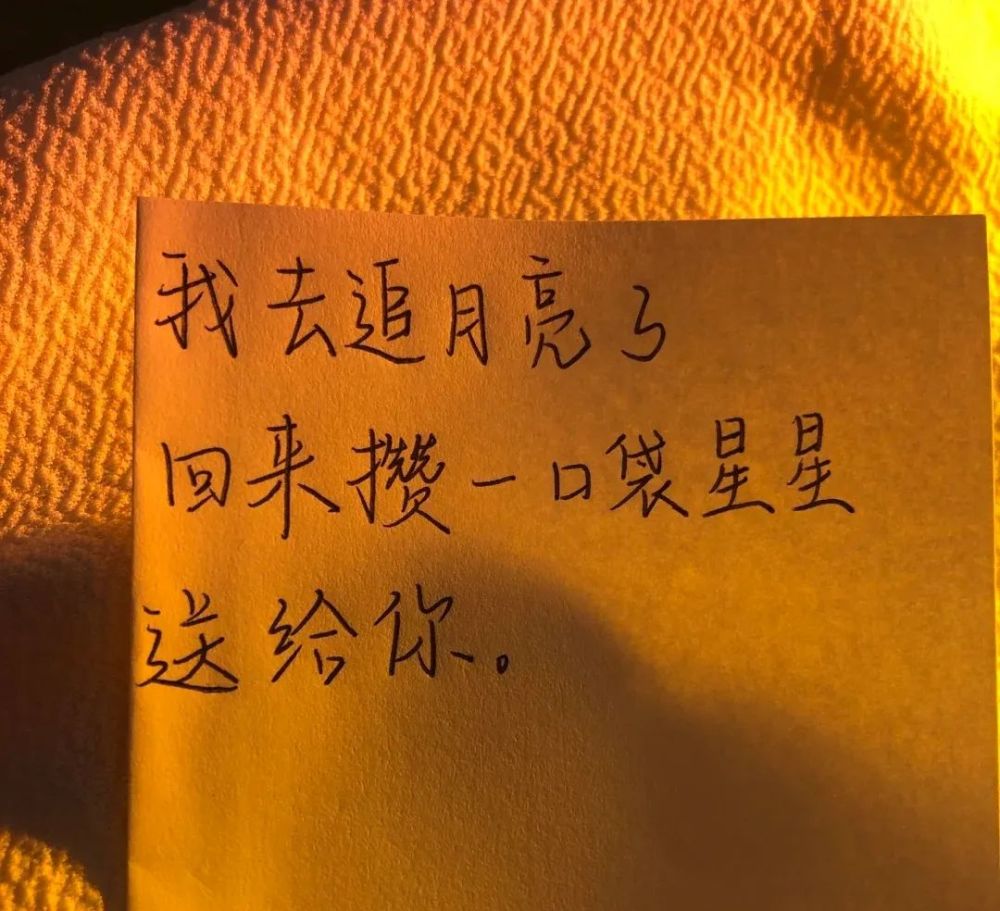 我去追月亮了
回来攒一口袋星星
送给你。